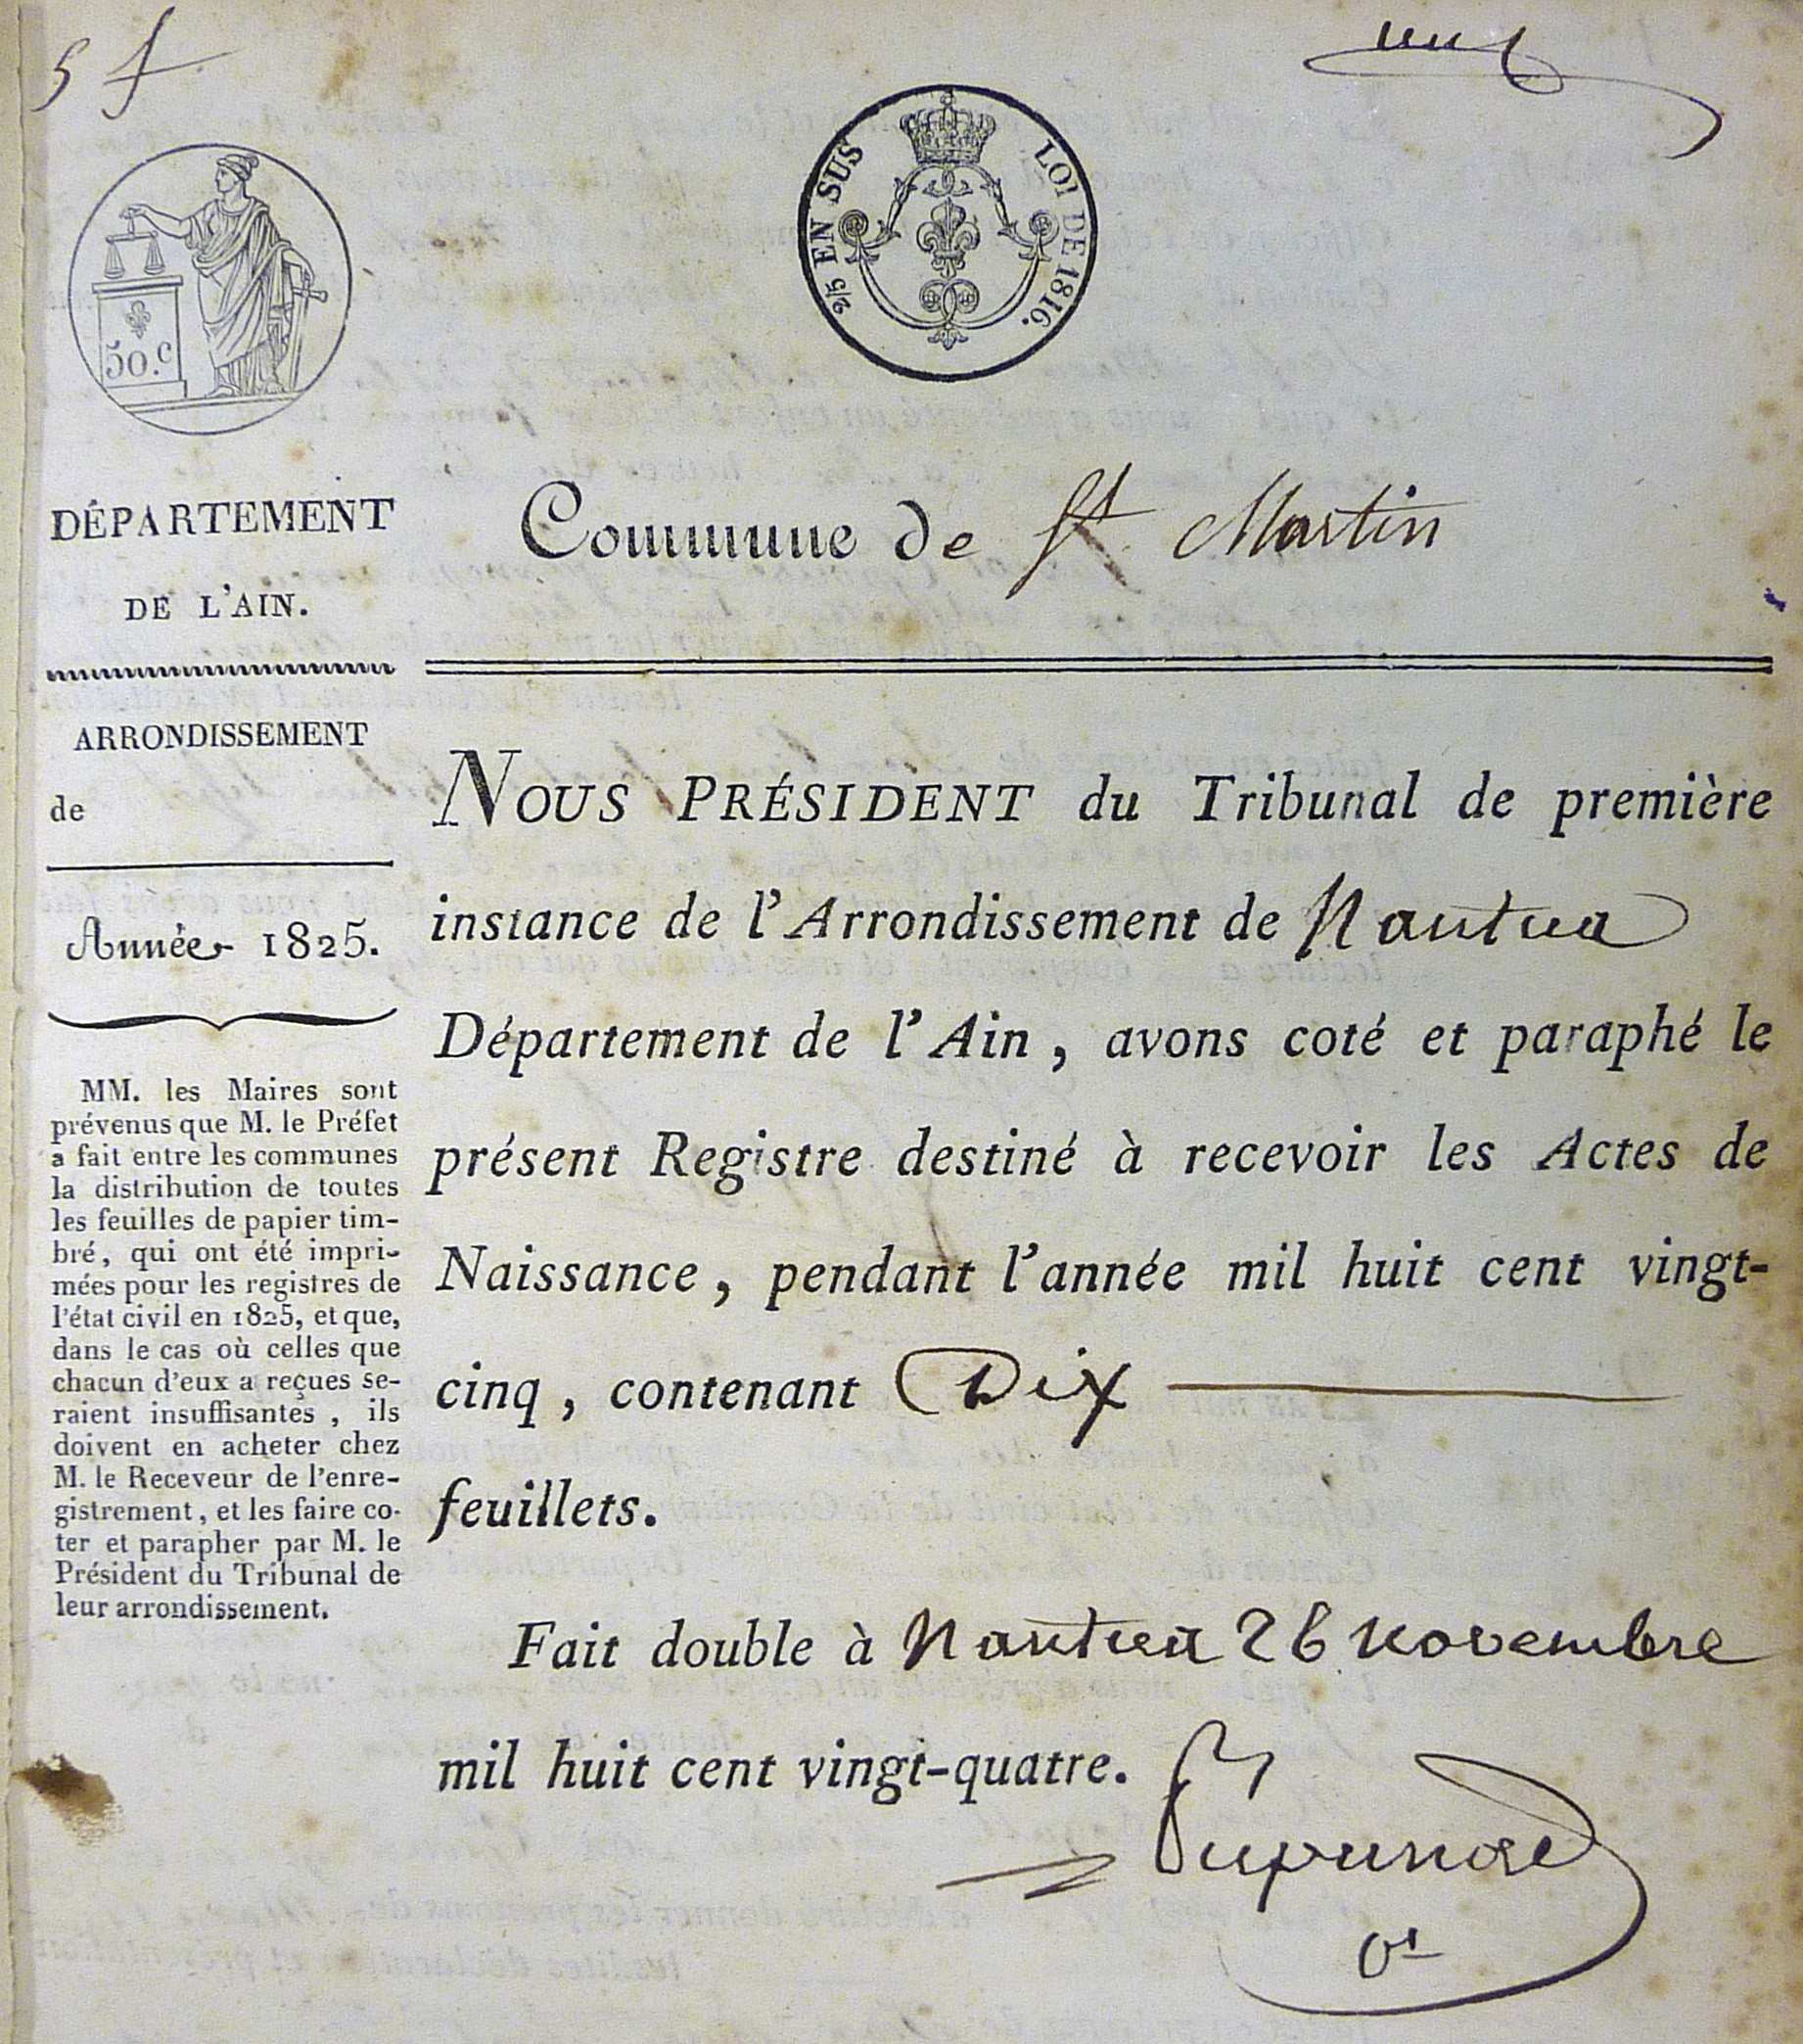 5 f
2/5 EN SUS LOI DE 1816.
50.c
DÉPARTEMENT
DE L'AIN.
Commune de St Martin
ARRONDISSEMENT
de
Année 1825.
MM. les Maires sont
prévenus que M. le Préfet
a fait entre les communes
la distribution de toutes
les feuilles de papier tim-
bré, qui ont été impri-
mées pour les registres de
l'état civil en 1825, et que,
dans le cas où celles que
chacun d'eux a reçues se-
raient insuffisantes, ils
doivent en acheter chez
M. le Receveur de l'enre-
gistrement, et les faire co-
ter et parapher par M. le
Président du Tribunal de
leur arrondissement.
NOUS PRÉSIDENT du Tribunal de première
instance de l'Arrondissement de Nantua
Département de l'Ain, avons coté et paraphé le
présent Registre destiné à recevoir les Actes de
Naissance, pendant l'année mil huit cent vingt-
cinq, contenant Dix
feuillets.
Fait double à Nantua 26 novembre
mil huit cent vingt-quatre.